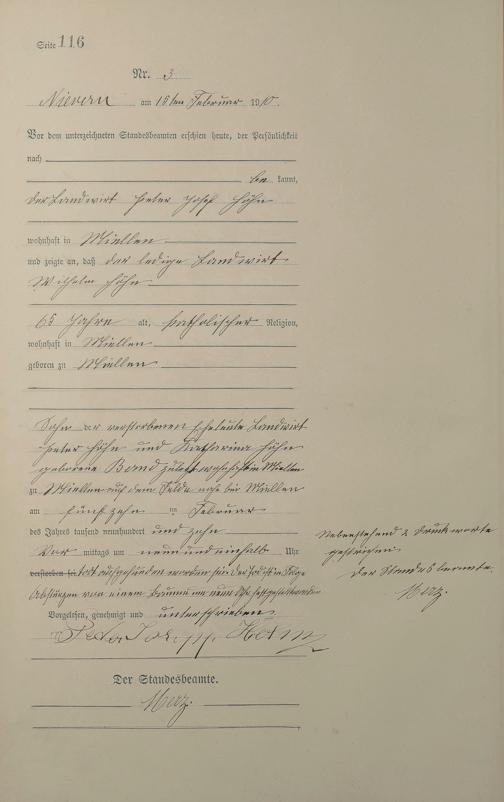 Seite 116
Nr. 3
Nievern am 15ten Februar 1910.
Vor dem unterzeichneten Standesbeamten erschien heute, der Persönlichkeit
nach
be kannt,
der Landwirt Peter Josef Höhn
wohnhaft in Miellen
und zeigte an, daß der ledige Landwirt
Wilhelm Höhn
65 Jahre alt, katholischer Religion,
wohnhaft in Miellen
geboren zu Miellen
Sohn der verstorbenen Eheleute Landwirt
Peter Höhn und Katharina Höhn
geborene Band zuletzt wohnhaft in Miellen
zu Miellen auf dem Felde nahe bei Miellen
am fünfzehn ten Februar
des Jahres tausend neunhundert und zehn
Vor mittags um neun und einhalb Uhr
verstorben sei tot aufgefunden worden sei. Der Tod ist in Folge
Abstürzen von einem Baume um neun Uhr
Vorgelesen, genehmigt und unterschrieben
Peter Josepp Höhn
Der Standesbeamte.
Merz.
Nebenstehend 2 Druckworte
gestrichen.
Der Standesbeamte.
Merz.